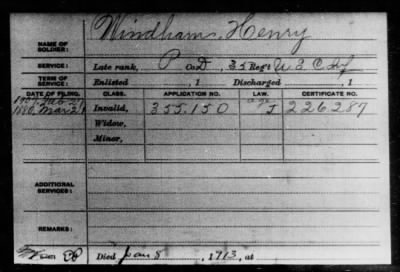 Windham, Henry
NAME OF SOLDIER:
SERVICE: Late rank, P Co. D, 35 Reg't U.S.C. Inf
TERM OF SERVICE: Enlisted , 1 Discharged , 1
DATE OF FILING. CLASS. APPLICATION NO. LAW. CERTIFICATE NO.
1907 Feb 21
1880, Mar 2 Invalid, 355.150 J 226287
Widow,
Minor,
ADDITIONAL SERVICES:
REMARKS:
Died Jan 8, 1913, at